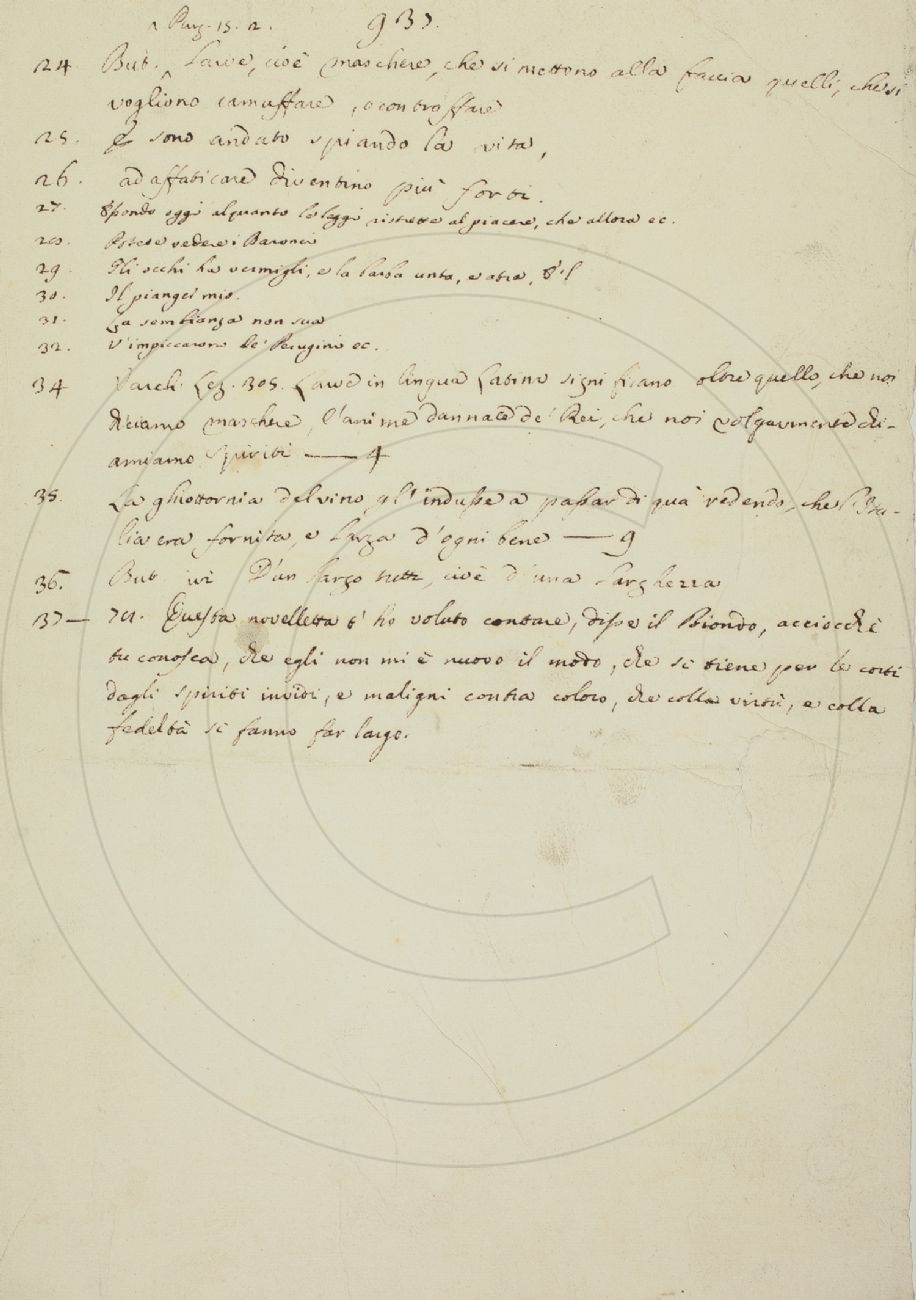 ^ Purg. 15. 2. 933.
24. But. ^ Larve, cioè maschere, che si mettono alla faccia quelli, che si
vogliono camuffare, o contraffare
25. E sono andato spiando la vita,
26. ad affaticare diventino più forti.
27. Spondo oggi alquanto le leggi ristrette al piacere, che allora ec.
28. Potete vedere i Baronci
29. Gli occhi ha vermigli, e la barba unta, e atra, E'l
30. Il pianger mio.
31. La sembianza non sua
32. S'impiccarono De' Perugini ec.
34 Varch. Lez. 305. Larve in lingua Latina significano oltre quello, che noi
diciamo maschere, l'anime dannate de' Rei, che noi volgarmente chi-
amiamo Spiriti —— 4
35. La ghiottornia del vino gl'indusse a passar di quà vedendo, che l'Ita-
lia era fornita, e larga d'ogni bene —— 9
36. But. ivi D'un largo tutti, cioè d'una larghezza
37— 71. Questa novelletta t'ho voluto contare, disse il Biondo, acciocchè
tu conosca, che egli non mi è nuovo il modo, che si tiene per le corti
dagli spiriti invidi, e maligni contra coloro, che colla virtù, e colla
fedeltà si fanno far largo.